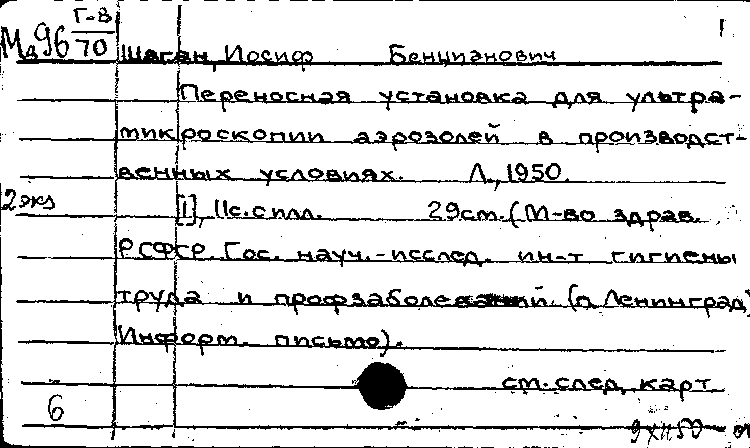 Г-В
Мд96 70 1
Шаган, Иосиф Бенцианович
Переносная установка для ультра-
микроскопии аэрозолей в производст-
венных условиях. Л., 1950.
2 экз [1], 11с. с илл. 29см. (М-во здрав.
РСФСР. Гос. науч.-исслед. ин-т гигиены
труда и профзаболеваний. (г. Ленинград)
Информ. письмо).
см. след. карт.
6